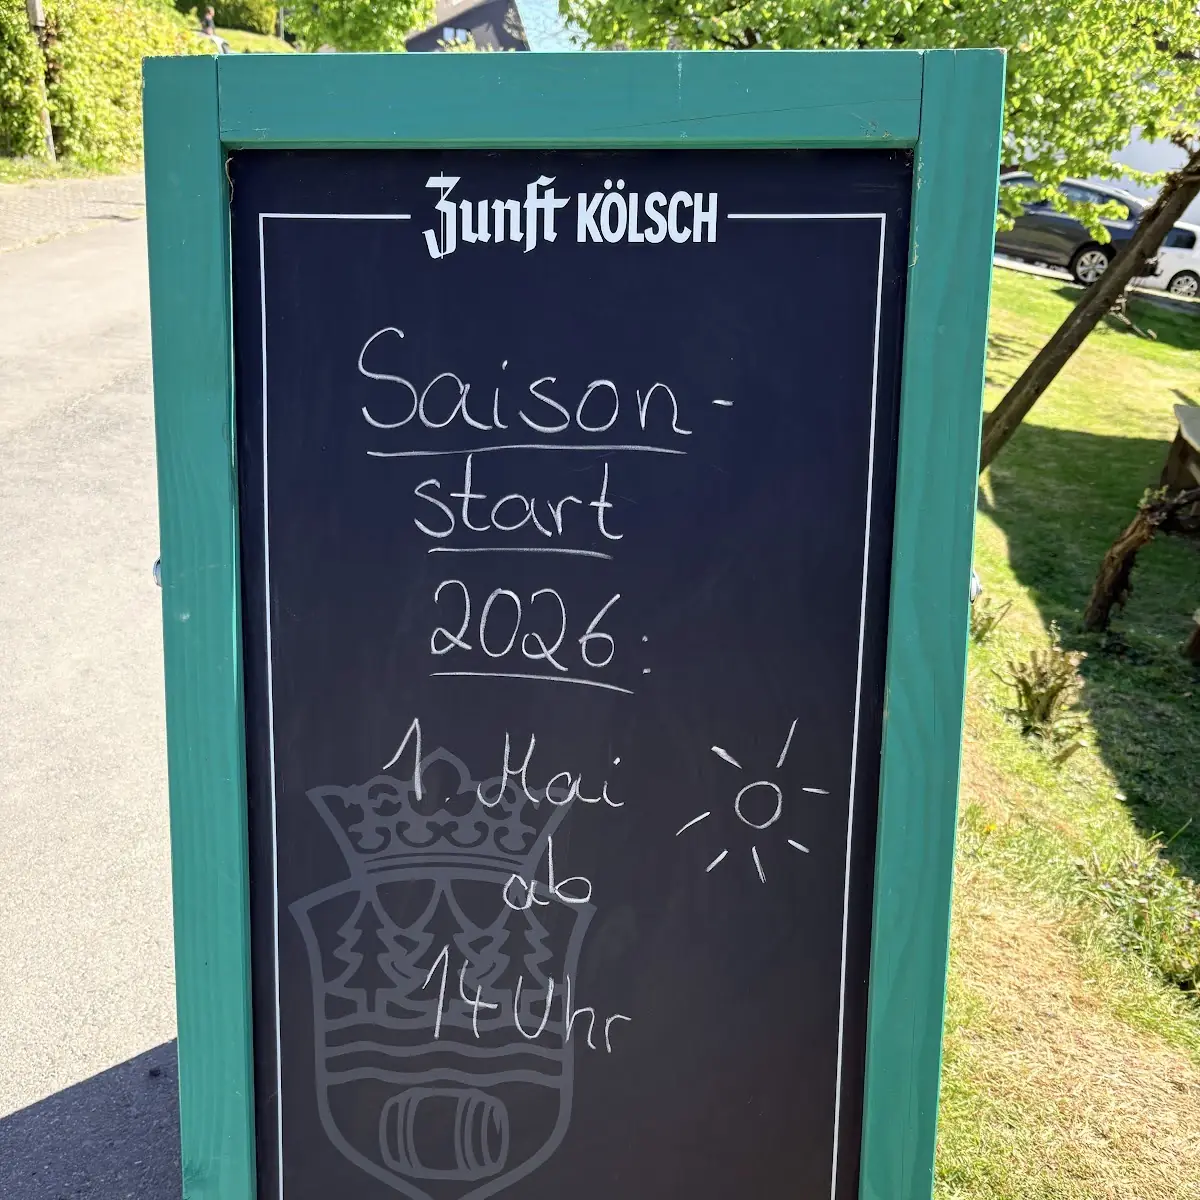 Zunft KÖLSCH
Saison-
start
2026:
1. Mai
ab
14 Uhr